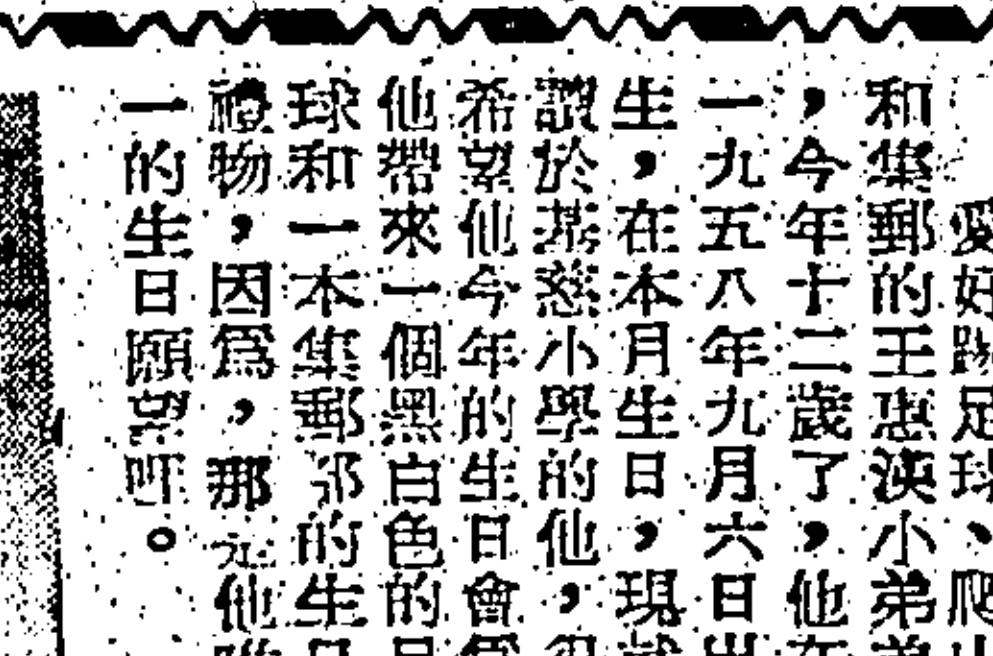 愛好踢足球、爬山
和集郵的王惠漢小弟弟
，今年十二歲了，他在
一九五八年九月六日出
生，在本月生日，現就
讀於基慈小學的他，很
希望他今年的生日會爲
他帶來一個黑白色的足
球和一本集郵 的生日
禮物，因爲，那 他唯
一的生日願望呀。